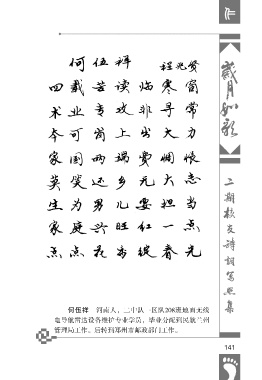 何伍祥
程光贤
四载苦读临寒窗
术业专攻非寻常
今可岗上出大力
家国两端费惆怅
英模还乡无大志
生为男儿要担当
家庭兴旺红一点
点点花卉绽春光
何伍祥 河南人，二中队一区队208班地面无线
电导航雷达设备维护专业学员，毕业分配到民航兰州
管理局工作。后转到郑州市邮政部门工作。
岁月如歌
二期校友诗词写照集
141